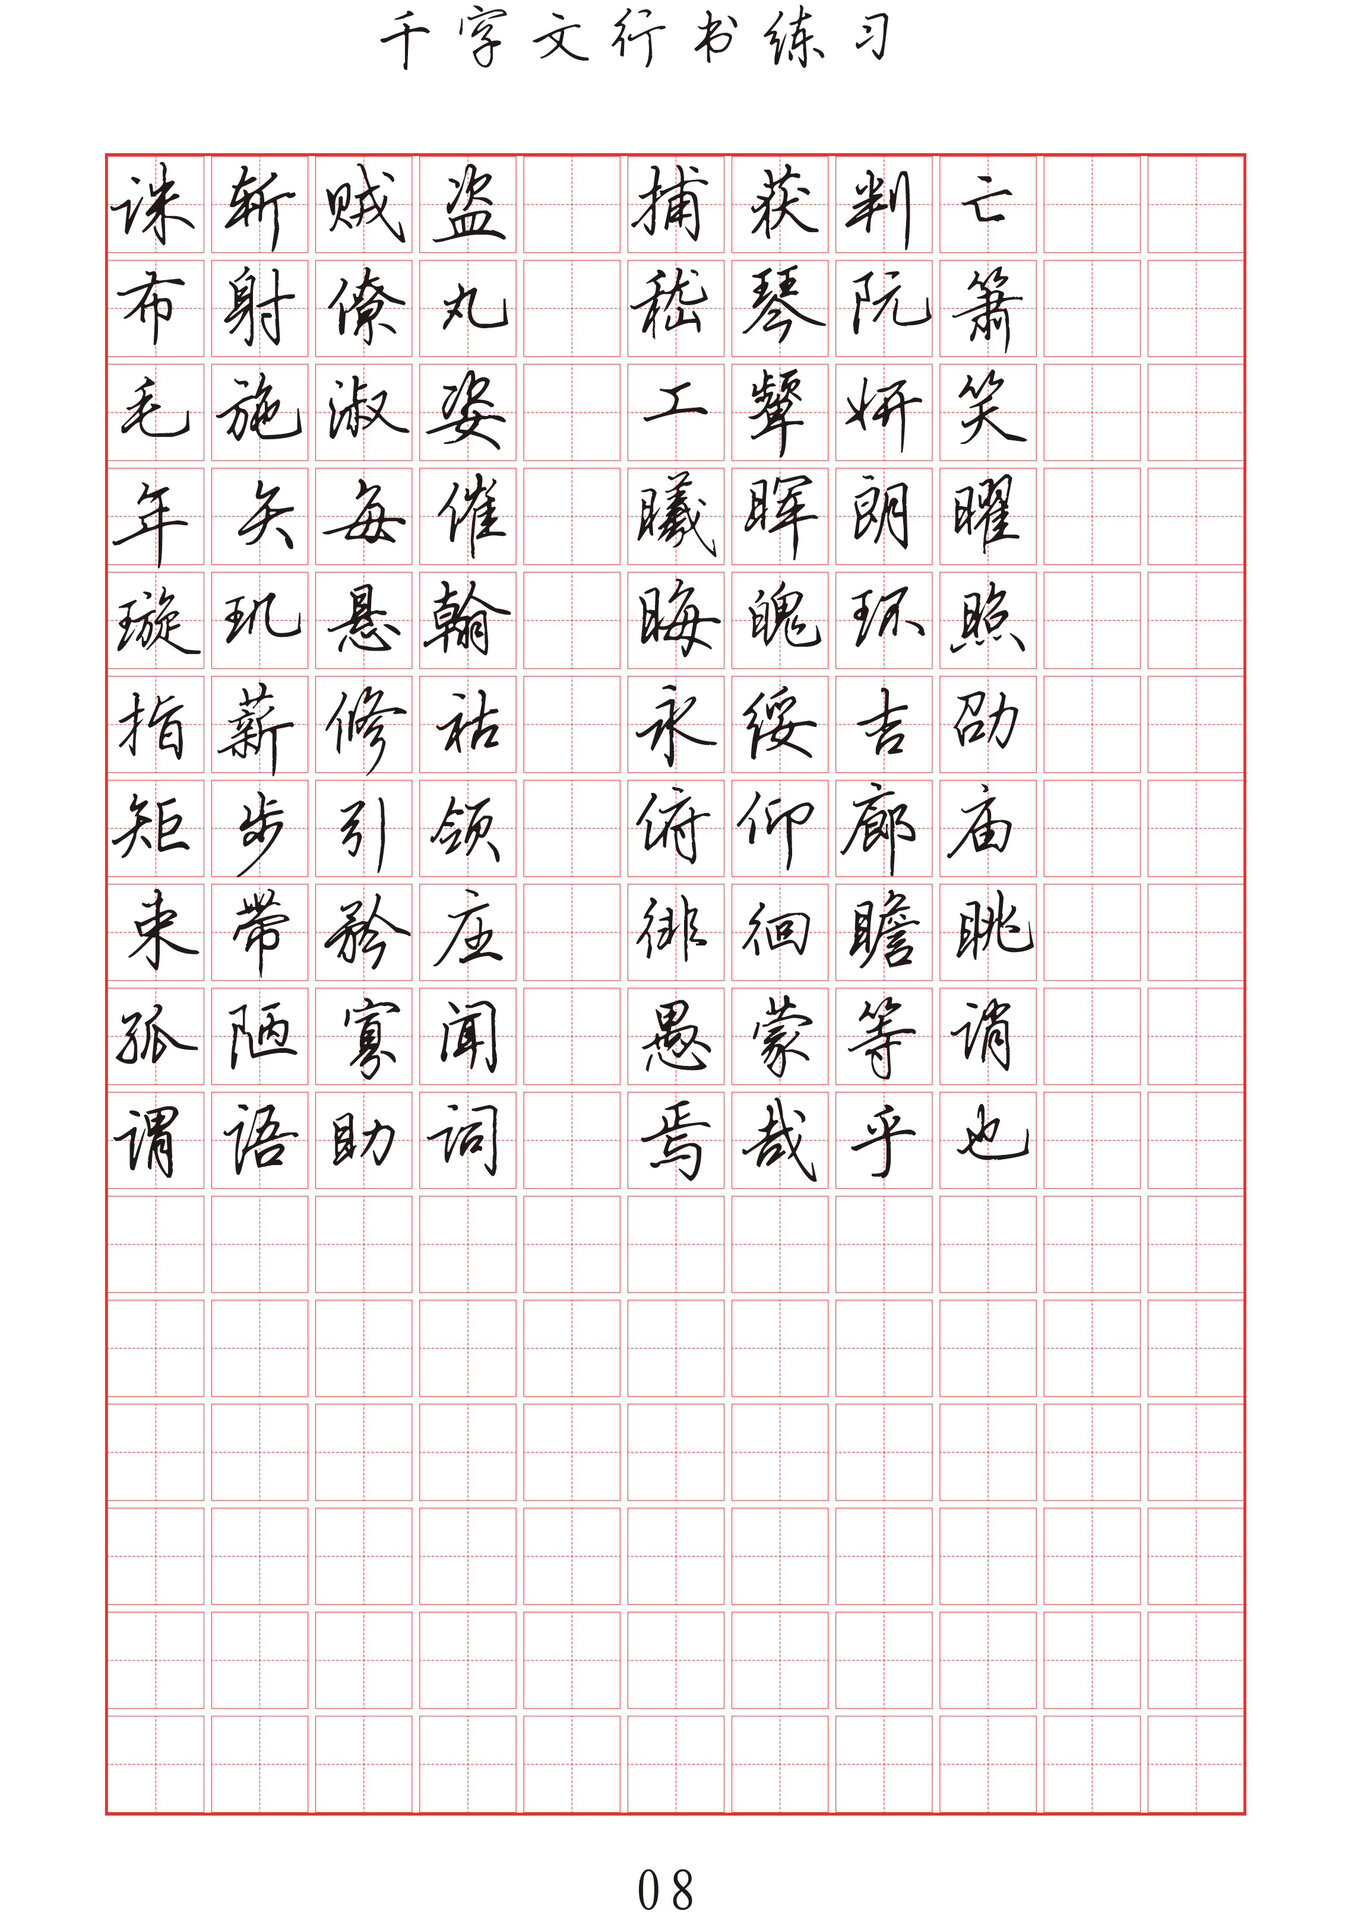 千字文行书练习
诛斩贼盗 捕获判亡
布射僚丸 嵇琴阮箫
毛施淑姿 工颦妍笑
年矢每催 曦晖朗曜
璇玑悬斡 晦魄环照
指薪修祜 永绥吉劭
矩步引领 俯仰廊庙
束带矜庄 徘徊瞻眺
孤陋寡闻 愚蒙等诮
谓语助词 焉哉乎也
08